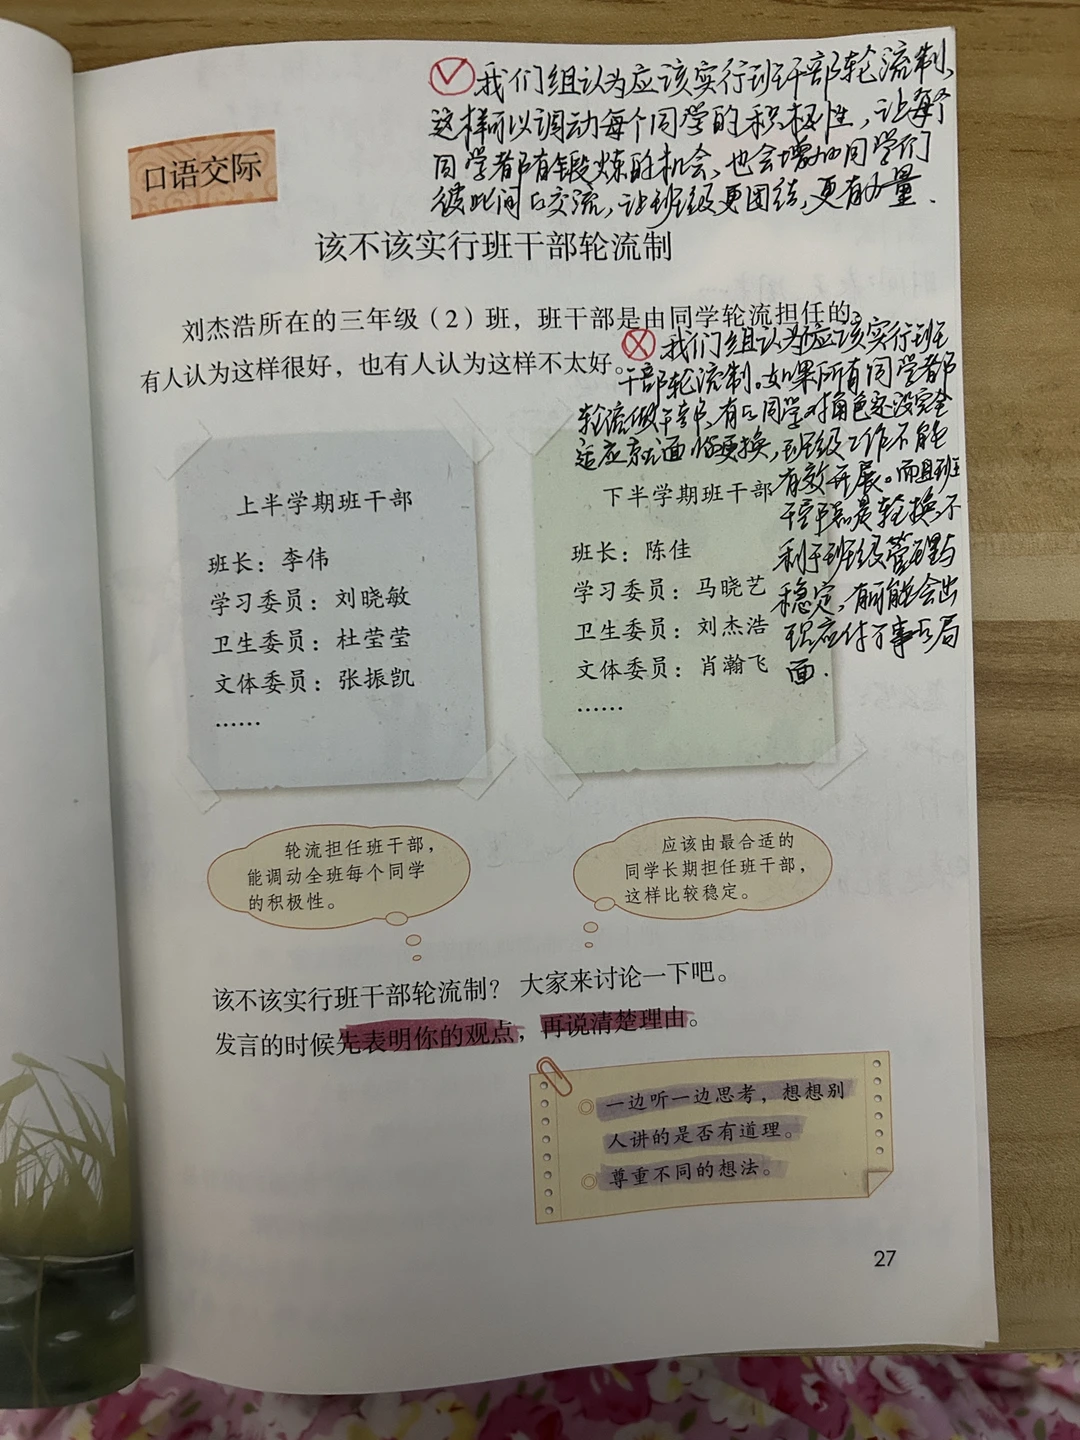 我们组认为应该实行班干部轮流制,
这样可以调动每个同学的积极性,让每个
同学都有锻炼的机会,也会增加同学们
彼此间的交流,让班级更团结,更有力量.
口语交际
该不该实行班干部轮流制
刘杰浩所在的三年级(2)班,班干部是由同学轮流担任的。
有人认为这样很好,也有人认为这样不太好。
我们组认为不应该实行班
干部轮流制。如果所有同学都
轮流做干部,有的同学对角色还没完全
适应就面临更换,班级工作不能
有效开展。而且班
干部总是轮换,不
利于班级管理与
稳定,有可能会出
现应付了事的局
面.
上半学期班干部
班长:李伟
学习委员:刘晓敏
卫生委员:杜莹莹
文体委员:张振凯
……
下半学期班干部
班长:陈佳
学习委员:马晓艺
卫生委员:刘杰浩
文体委员:肖瀚飞
……
轮流担任班干部,
能调动全班每个同学
的积极性。
应该由最合适的
同学长期担任班干部,
这样比较稳定。
该不该实行班干部轮流制?大家来讨论一下吧。
发言的时候先表明你的观点,再说清楚理由。
一边听一边思考,想想别
人讲的是否有道理。
尊重不同的想法。
27